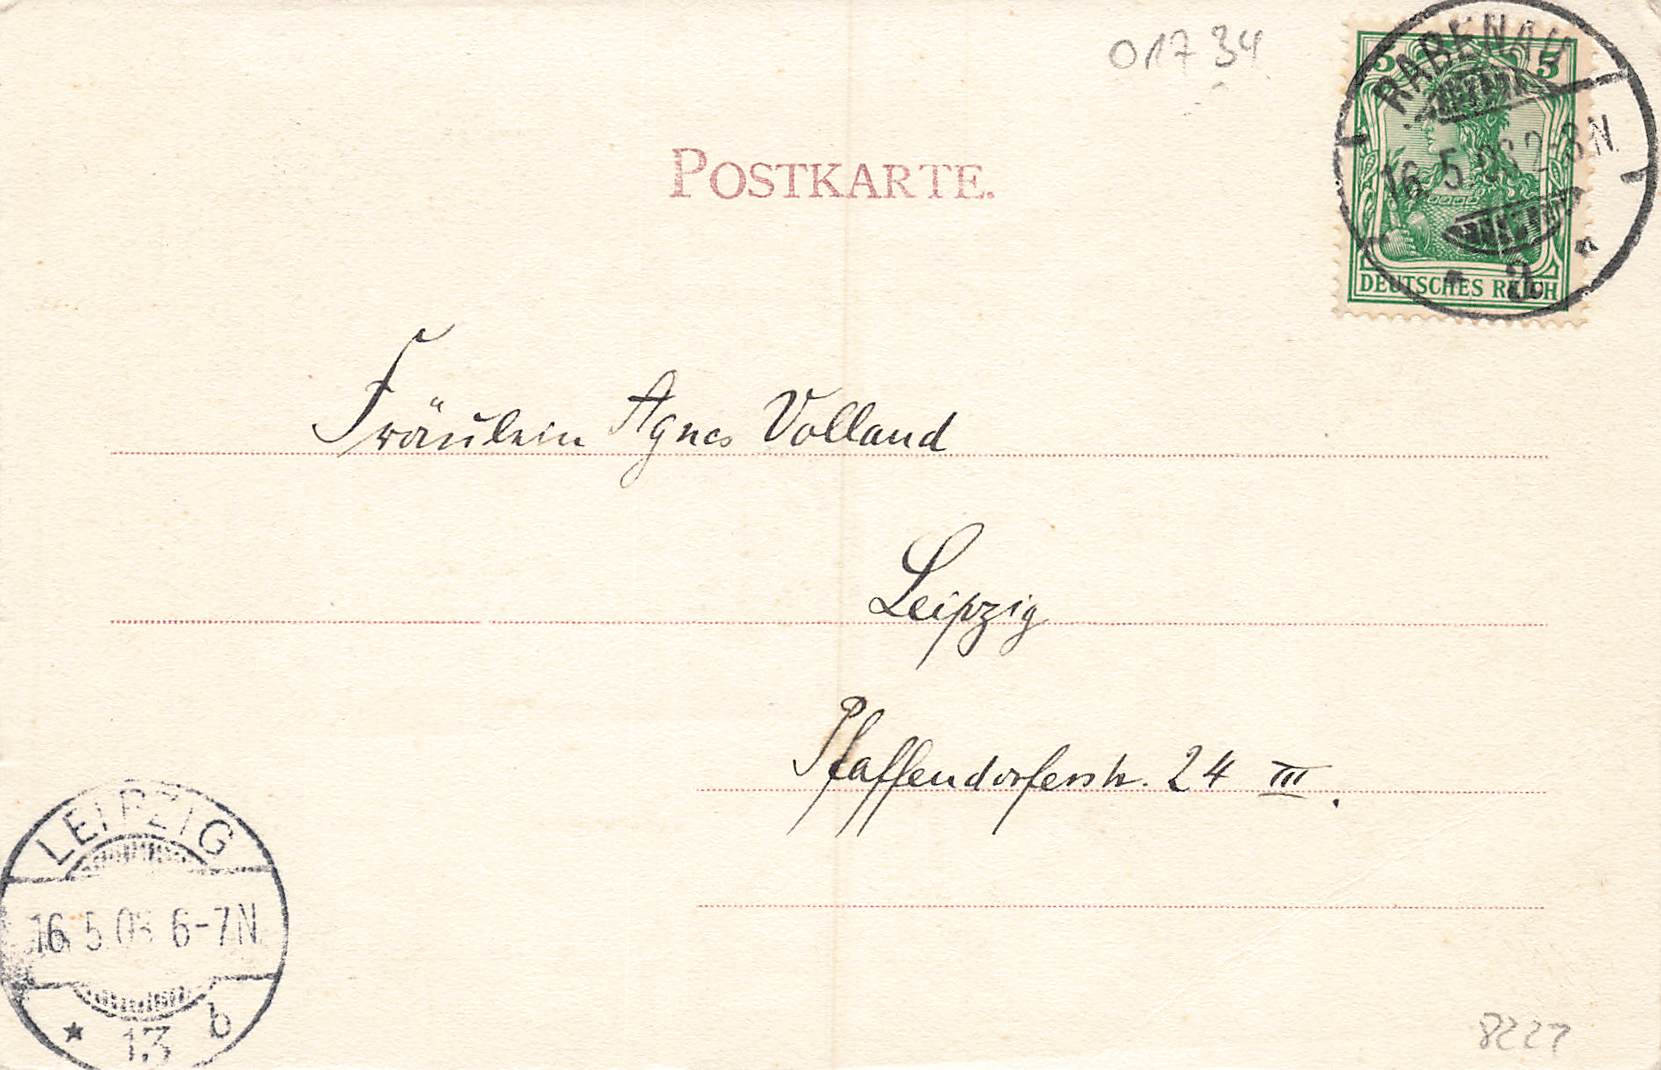 01734
POSTKARTE.
5 5
RABENAU
16.5.03 2-3N
* a *
DEUTSCHES REICH
Fräulein Agnes Volland
Leipzig
Pfaffendorferstr. 24 III.
LEIPZIG
16.5.03 6-7N
* 13 b
8227